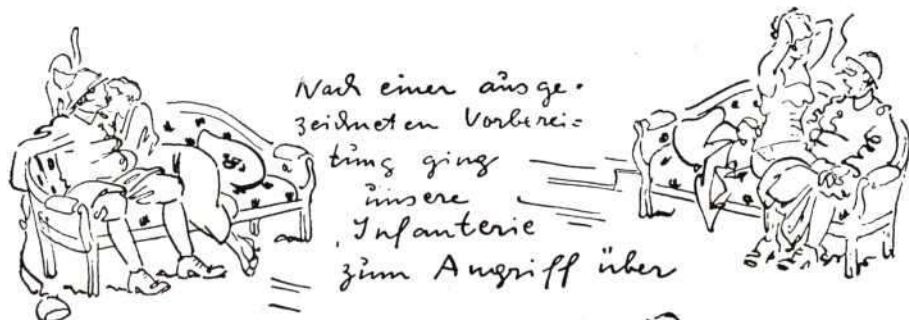 Nach einer ausge-
zeichneten Vorberei=
tung ging
unsere
Infanterie
zum Angriff über